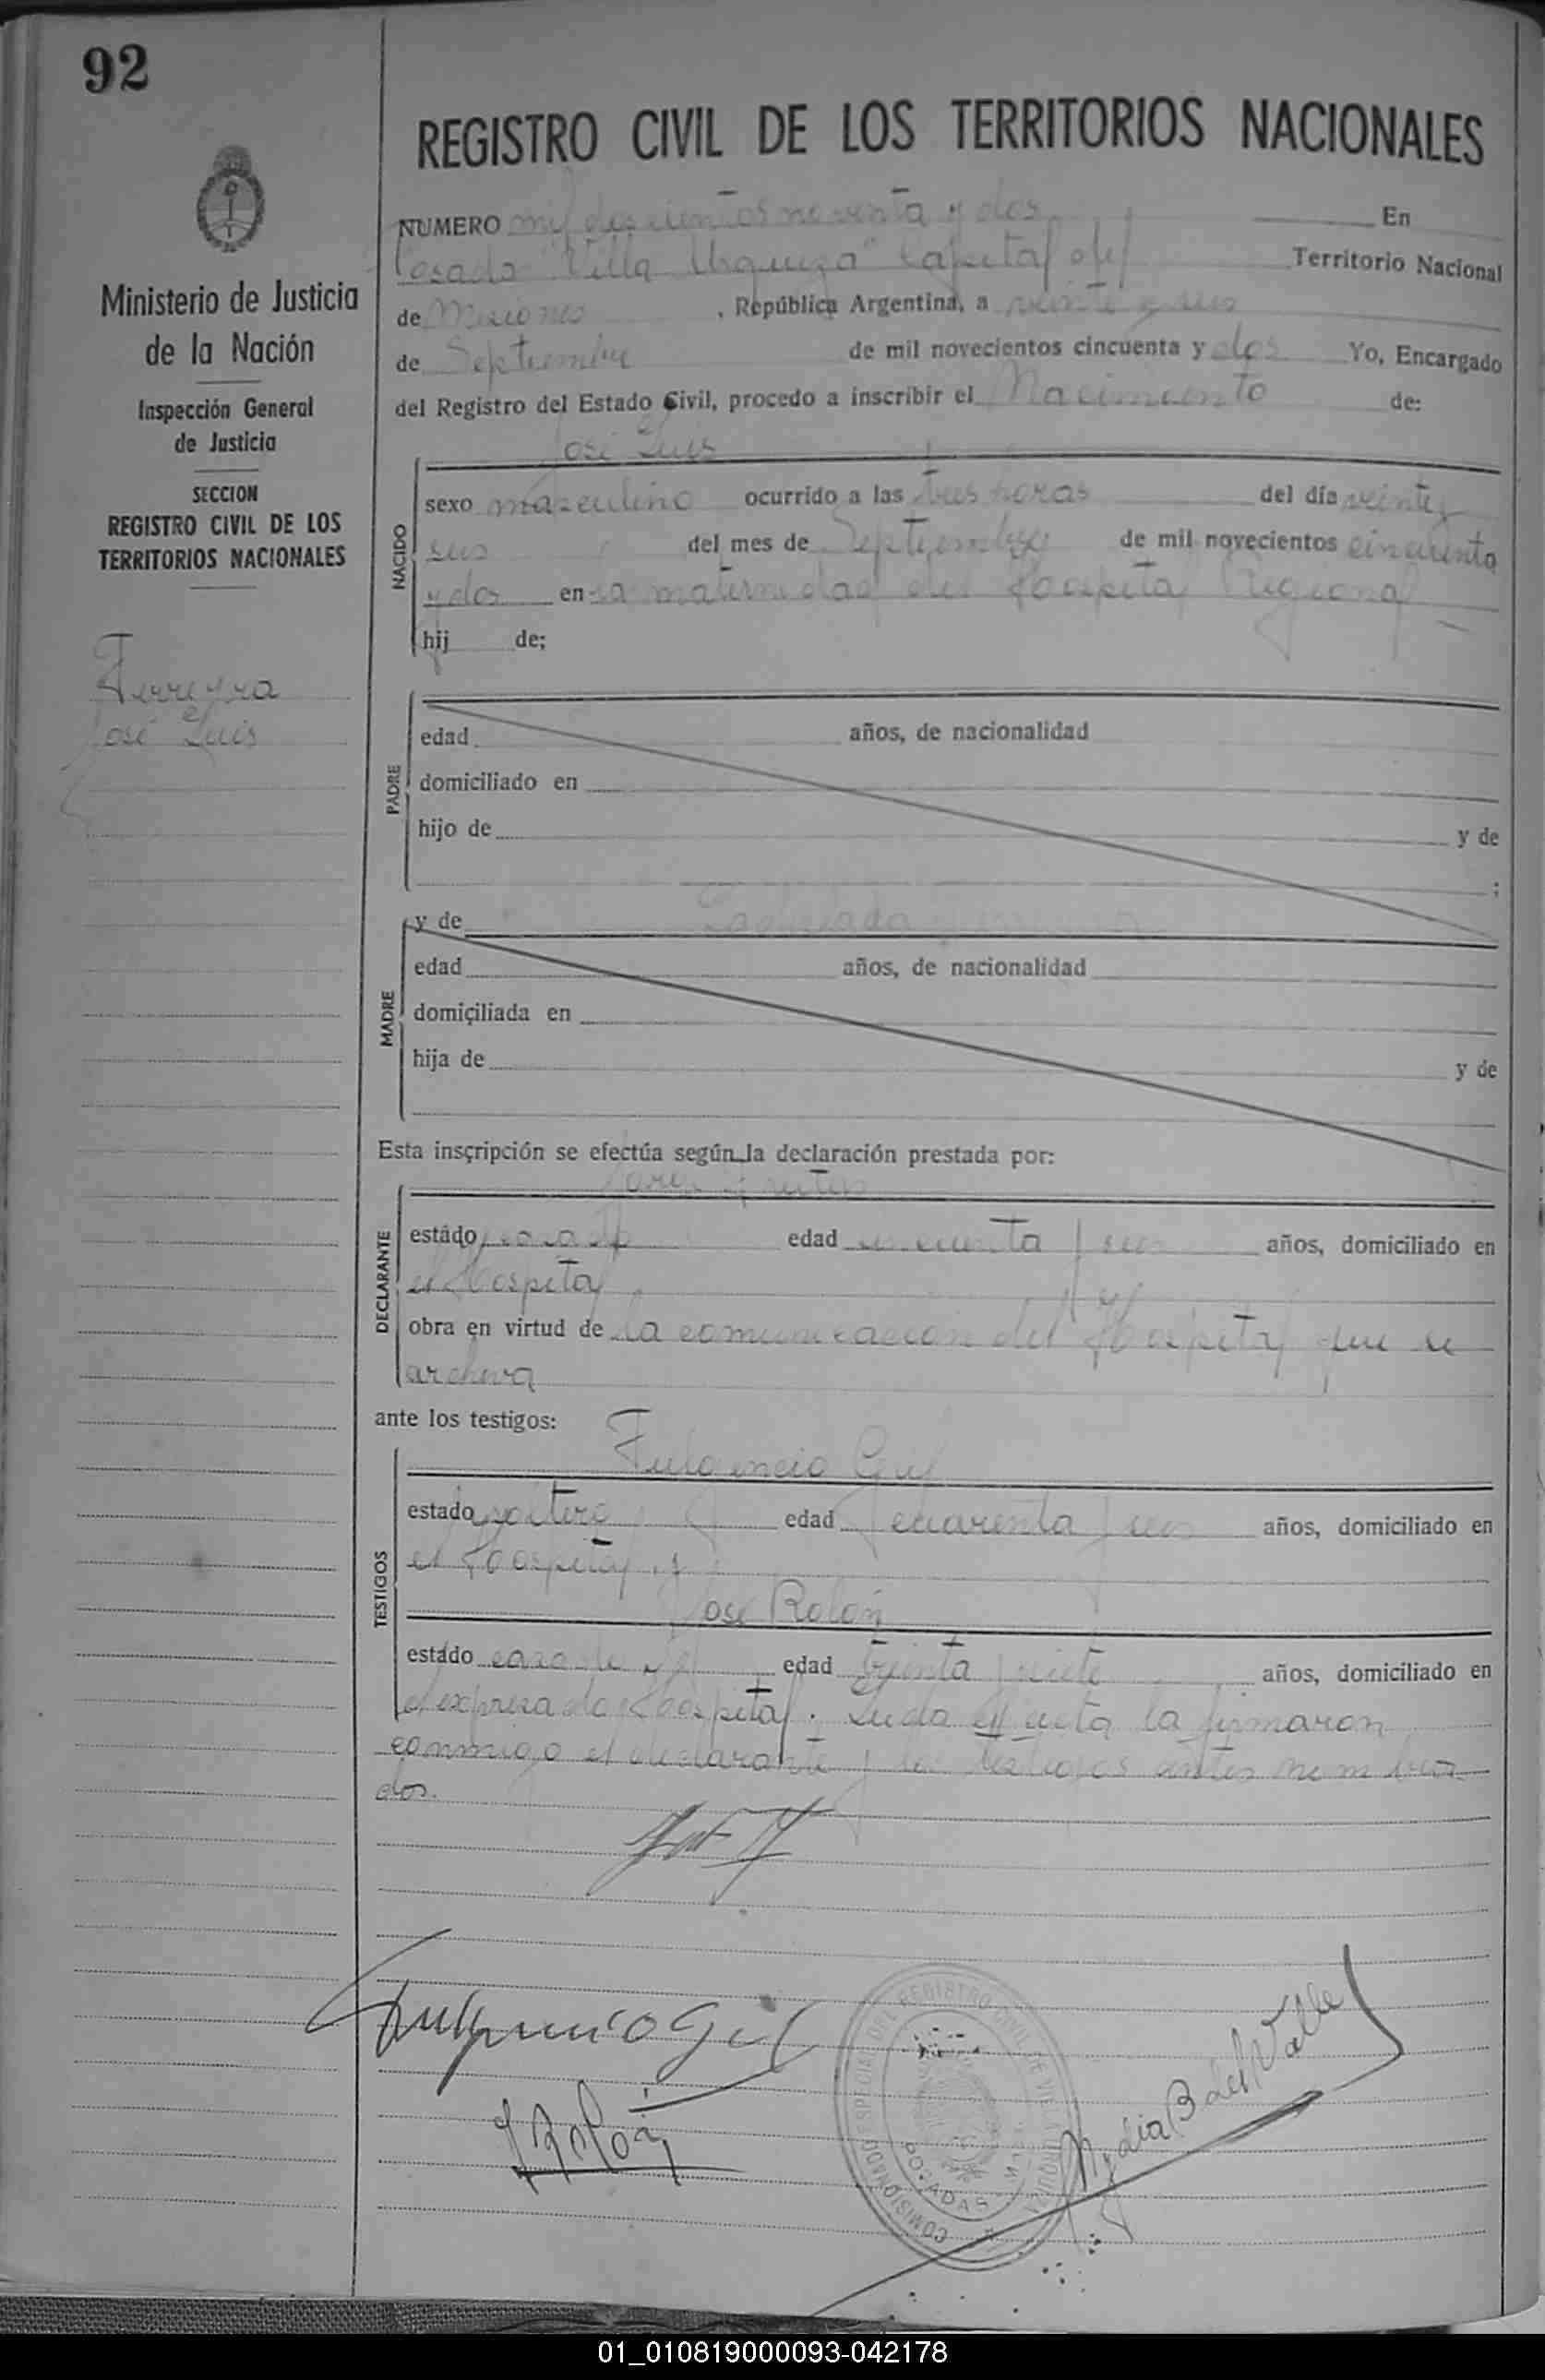 92
REGISTRO CIVIL DE LOS TERRITORIOS NACIONALES
Ministerio de Justicia
de la Nación
Inspección General
de Justicia
SECCION
REGISTRO CIVIL DE LOS
TERRITORIOS NACIONALES
Ferreyra
José Luis
NUMERO mil doscientos noventa y dos En
Posadas "Villa Urquiza" Capital del Territorio Nacional
de Misiones , República Argentina, a veinte y seis
de Septiembre de mil novecientos cincuenta y dos Yo, Encargado
del Registro del Estado Civil, procedo a inscribir el Nacimiento de:
José Luis
NACIDO
sexo masculino ocurrido a las tres horas del día veinte y
seis del mes de Septiembre de mil novecientos cincuenta
y dos en la maternidad del Hospital Regional
hij de;
PADRE
edad años, de nacionalidad
domiciliado en
hijo de y de
;
MADRE
y de
edad años, de nacionalidad
domiciliada en
hija de y de
Esta inscripción se efectúa según la declaración prestada por:
DECLARANTE
estado casado edad cincuenta y seis años, domiciliado en
el Hospital
obra en virtud de la comunicación del Hospital que se
archiva
ante los testigos:
Fulgencio Gil
TESTIGOS
estado soltero edad cuarenta y seis años, domiciliado en
el Hospital y
José Rolón
estado casado edad treinta y siete años, domiciliado en
el expresado Hospital. Leida el acta la firmaron
conmigo el declarante y los testigos antes nombra
dos.
Fulgencio Gil
J Rolón
Nydia B del Valle
COMISIONADO ESPECIAL DEL REGISTRO CIVIL DE VILLA URQUIZA
POSADAS
01_010819000093-042178